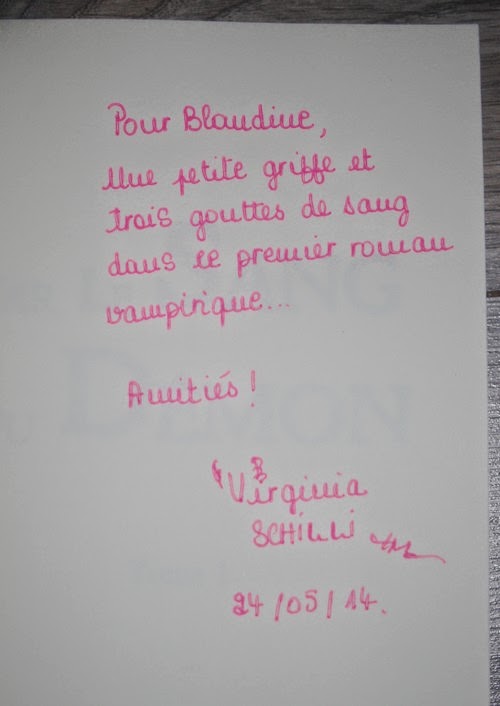 Pour Blandine,
Une petite griffe et
trois gouttes de sang
dans ce premier roman
vampirique...
Amitiés !
Virginia
SCHILLI
24/05/14.